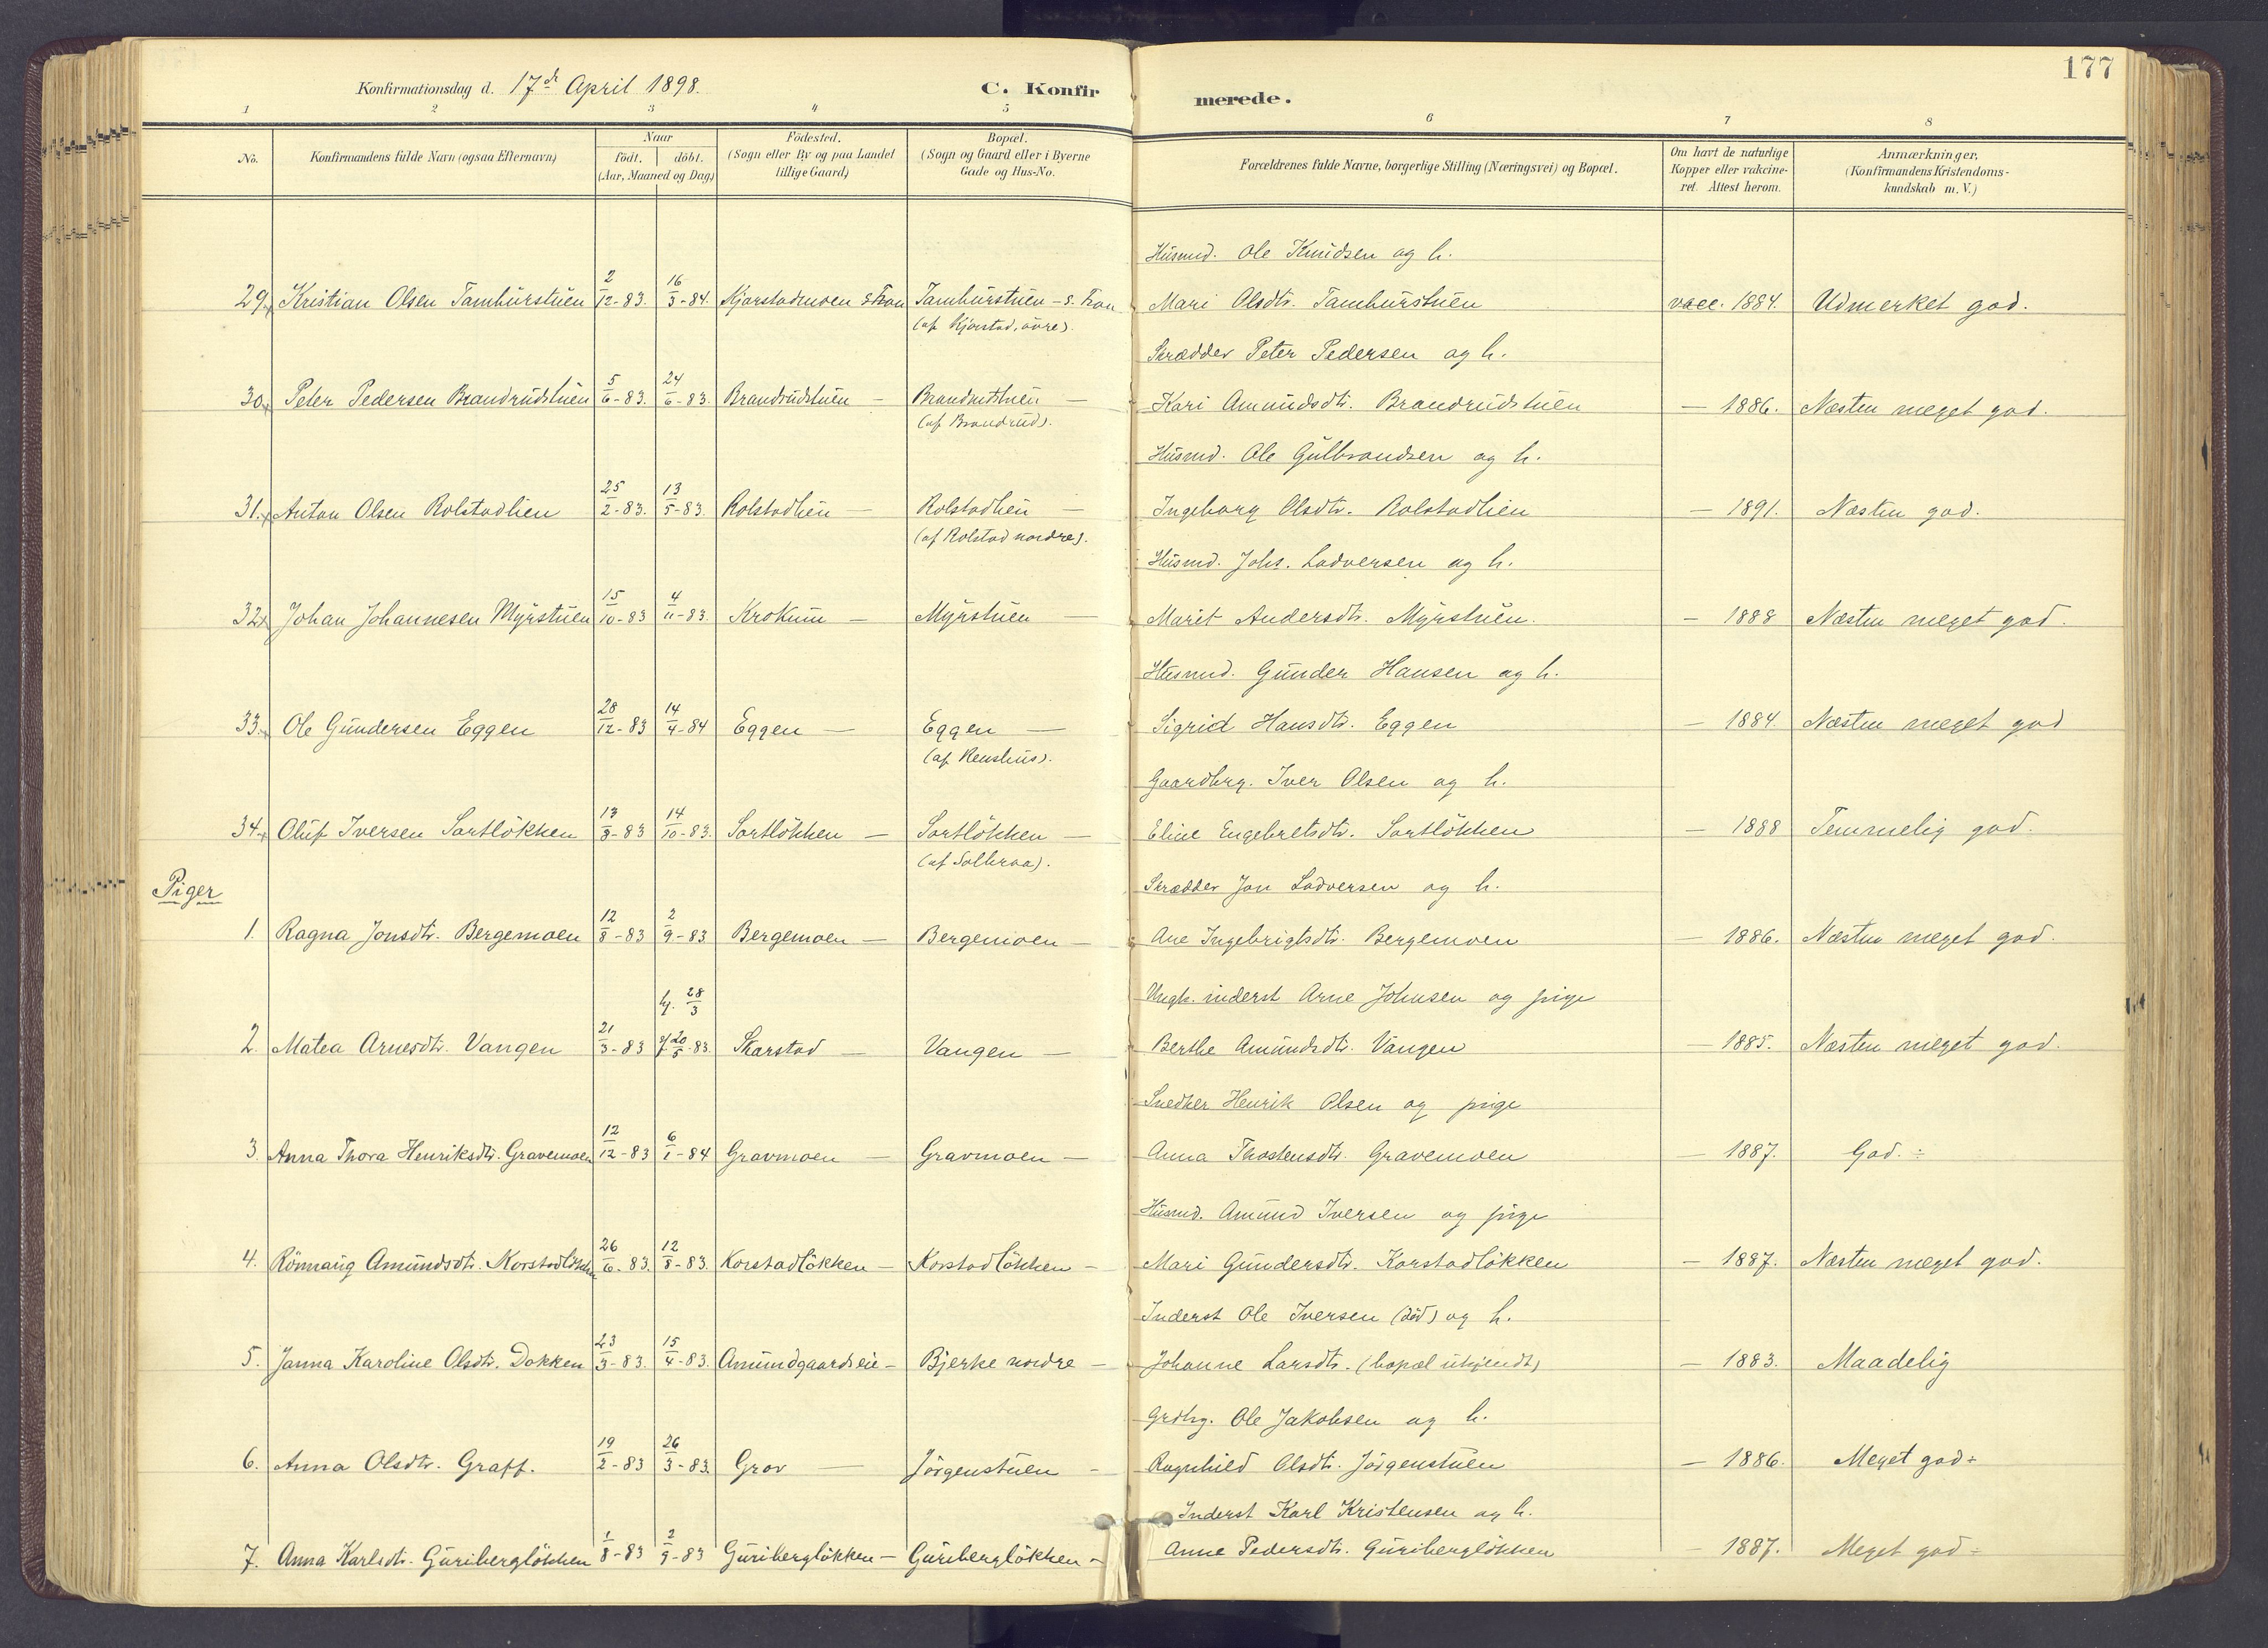 177
Konfirmationsdag d. 17de April 1898.
C. Konfirmerede.
1 2 3 4 5 6 7 8
No.
Konfirmandens fulde Navn (ogsaa Efternavn)
Naar
födt. döbt.
(Aar, Maaned og Dag)
Födested.
(Sogn eller By og paa Landet
tillige Gaard)
Bopæl.
(Sogn og Gaard eller i Byerne
Gade og Hus-No.
Forældrenes fulde Navne, borgerlige Stilling (Næringsvei) og Bopæl.
Om havt de naturlige
Kopper eller vakcine-
ret. Attest herom.
Anmærkninger,
(Konfirmandens Kristendoms-
kundskab m. V.)
Husmd. Ole Knudsen og h.
29. Kristian Olsen Tamburstuen 2/12-83. 16/3-84. Kjorstadmoen S. Fron Tamburstuen - S. Fron Mari Olsdtr. Tamburstuen vacc. 1884. Udmerket god.
(af Kjorstad, övre).
Skrædder Peter Pedersen og h.
30. Peter Pedersen Brandrudstuen 5/6-83. 24/6-83. Brandrudstuen — Brandrudstuen — Kari Amundsdtr. Brandrudstuen — 1886. Næsten meget god.
(af Brandrud).
Husmd. Ole Gulbrandsen og h.
31. Anton Olsen Rolstadlien 25/2-83. 13/5-83. Rolstadlien — Rolstadlien — Ingeborg Olsdtr. Rolstadlien — 1891. Næsten god.
(af Rolstad nordre).
Husmd. Johs. Lodversen og h.
32. Johan Johannesen Myrstuen 15/10-83 4/11-83. Krokum — Myrstuen — Marit Andersdtr. Myrstuen. — 1888 Næsten meget god.
Husmd. Gunder Hansen og h.
33. Ole Gundersen Eggen 28/12-83 14/4-84 Eggen — Eggen — Sigrid Hansdtr. Eggen — 1884. Næsten meget god
(af Renshus).
Gaardbrg. Iver Olsen og h.
34. Oluf Iversen Sortlökken 13/8-83 14/10-83. Sortlökken — Sortlökken — Eline Engebretsdtr. Sortlökken — 1888 Temmelig god.
(af Solbraa).
Piger
Skrædder Jon Lodversen og h.
1. Ragna Jonsdtr. Bergemoen 12/8-83 2/9-83. Bergemoen — Bergemoen — Ane Ingebrigtsdtr. Bergemoen — 1886. Næsten meget god.
hj. 28/3
Ungk. inderst Arne Johnsen og pige
2. Matea Arnesdtr. Vangen 21/3-83 20/5-83. Skarstad — Vangen — Berthe Amundsdtr. Vangen — 1885. Næsten meget god.
Snedker Henrik Olsen og pige
3. Anna Thora Henriksdtr. Gravemoen 12/12-83 6/1-84 Gravmoen — Gravmoen — Anna Thostensdtr. Gravemoen — 1887. God. ÷
Husmd. Amund Iversen og pige
4. Rönnaug Amundsdtr. Korstadlökken 26/6-83. 12/8-83. Korstadlökken — Korstadlökken — Mari Gundersdtr. Korstadlökken — 1887. Næsten meget god.
Inderst Ole Iversen (död) og h.
5. Janna Karoline Olsdtr. Dokken 23/3-83. 15/4-83. Amundgaardseie — Bjerke nordre — Johanne Larsdtr. (bopæl ukjendt) — 1883. Maadelig
Grdbrg. Ole Jakobsen og h.
6. Anna Olsdtr. Graff. 19/2-83 26/3-83. Grov — Jörgenstuen — Ragnhild Olsdtr. Jörgenstuen — 1886. Meget god ÷
Inderst Karl Kristensen og h.
7. Anna Karlsdtr. Guriberglökken 1/8-83 2/9-83 Guriberglökken — Guriberglökken — Anne Pedersdtr. Guriberglökken — 1887. Meget god ÷